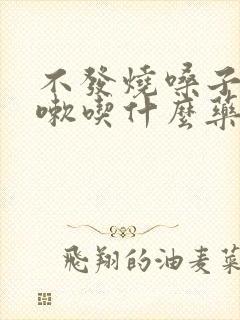 不發燒嗓子
嗽喫什麼藥
飛翔的油麦菜